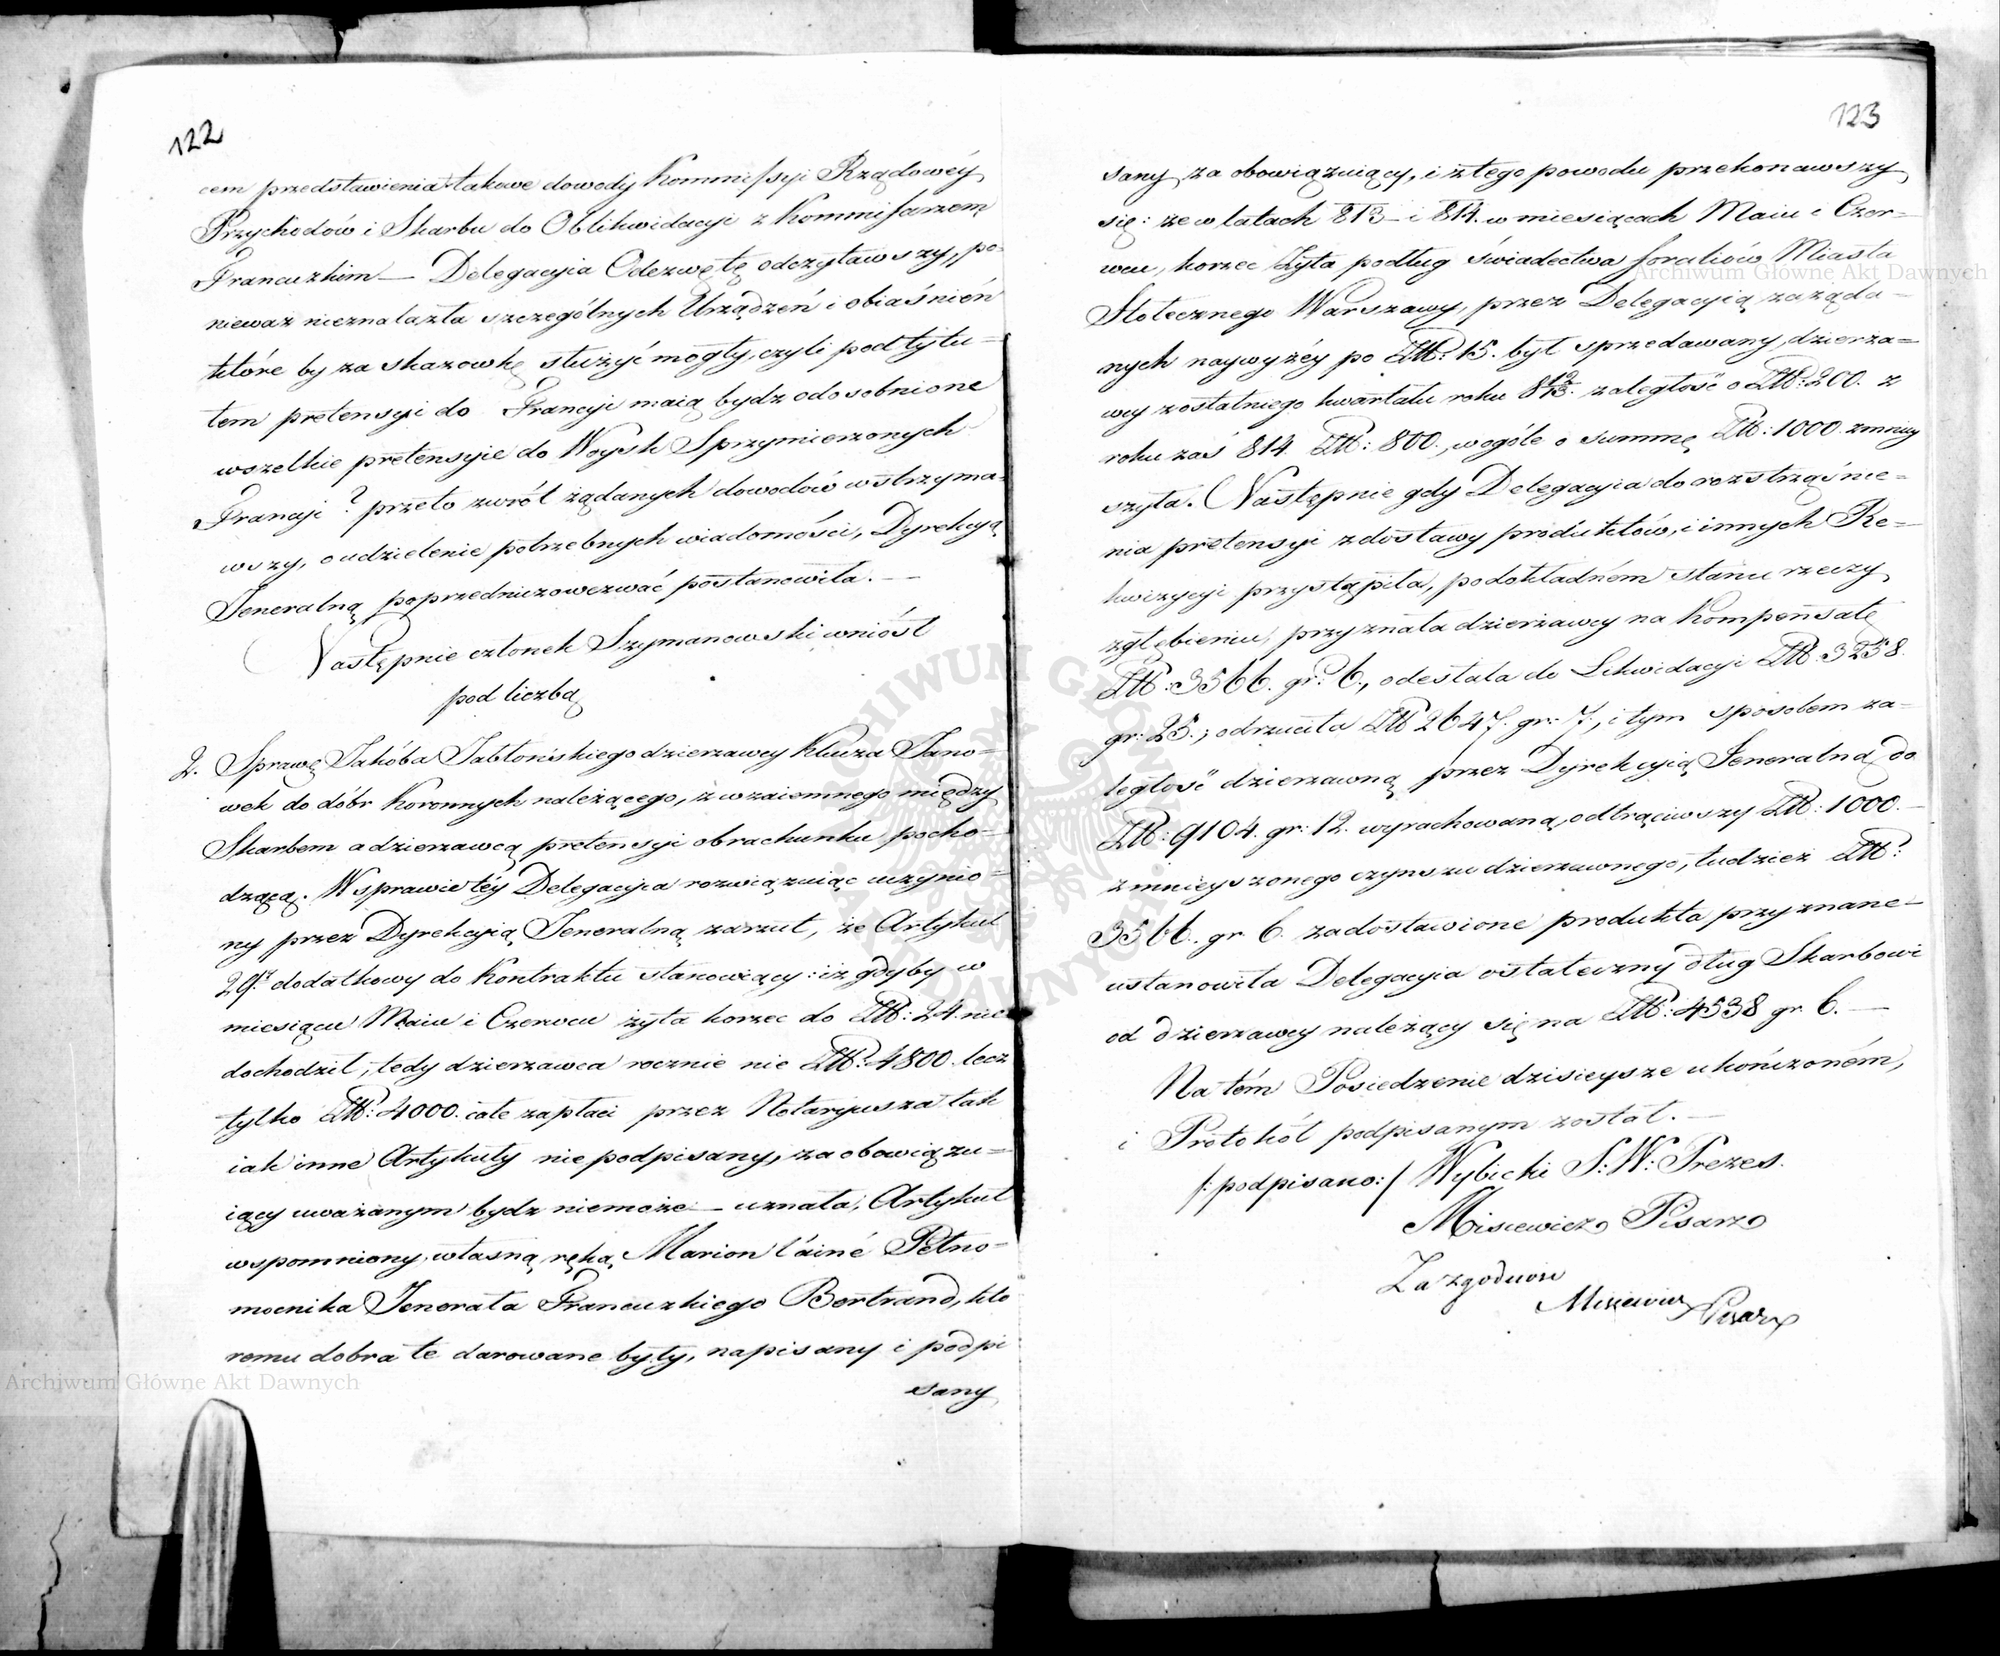 122
cem przedstawienia takowe dowody Kommissyi Rządowéy
Przychodów i Skarbu do Oblikwidacyi z Kommissarzem
Francuzkim — Delegacyia Odezwę tę odczytawszy, po-
nieważ nieznalazła szczególnych Urządzeń i obiaśnień
któreby za skazowkę służyć mogły, czyli pod tytu-
tem pretensyi do Francyi maią bydz odosobnione
wszelkie pretensyie do Woysk Sprzymierzonych
Francyi? przeto zwrót żądanych dowodów wstrzyma-
wszy, o udzielenie potrzebnych wiadomości, Dyrekcyą
Jeneralną poprzedniczo wezwać postanowiła. —
Następnie członek Szymanowski wniósł
pod liczbą
2. Sprawę Jakóba Jabłońskiego dzierzawcy Klucza Jano-
wek do dóbr Koronnych należącego, z wzaiemnego między
Skarbem a dzierzawcą pretensyi obrachunku pocho-
dzącą. W sprawie téy Delegacyia rozwiązuiąc uczynio-
ny przez Dyrekcyią Jeneralną zarzut, że Artykuł
29ty dodatkowy do Kontraktu stanowiący: iż gdyby w
miesiącu Maiu i Czerwcu żyta korzec do Złł: 24. nie
dochodził, tedy dzierzawca rocznie nie Złł: 4800. lecz
tylko Złł: 4000. całe zapłaci przez Notaryusza tak
iak inne Artykuły nie podpisany, za obowiązu-
iący uważanym bydz niemoże — uznała, Artykuł
wspomniony własną ręką Marion l'ainé Pełno-
mocnika Jenerała Francuzkiego Bertrand, któ
remu dobra te darowane były, napisany i podpi
sany
123
sany za obowiązuiący, i z tego powodu przekonawszy
się: że w latach 813 i 814. w miesiącach Maiu i Czer-
wcu, korzec Żyta podług świadectwa foraliów Miasta
Stołecznego Warszawy, przez Delegacyią zażąda-
nych naywyżéy po Złł: 15. był sprzedawany, dzierża-
wcy z ostatniego kwartału roku 8 12/13. zaległość o Złł: 200. z
roku zaś 814 Złł: 800., wogóle o summę Złł: 1000. zmniey
szyła. Następnie gdy Delegacyia do rozstrząśnie-
nia pretensyi z dostawy produktów, i innych Re-
kwizycyi przystąpiła, po dokładném stanu rzeczy
zgłębieniu, przyznała dzierżawcy na Kompensatę
Złł: 3566. gr: 6., odesłała do Likwidacyi Złł: 3258.
gr: 25., odrzuciła Złł 2647. gr: 7., i tym sposobem za-
ległość dzierzawną przez Dyrekcyią Jeneralną do
Złł: 9104. gr: 12. wyrachowaną, odtrąciwszy Złł: 1000. —
zmnieyszonego czynszu dzierzawnego, tudzież Złł:
3566. gr 6. za dostawione produkta przyznane —
ustanowiła Delegacyia ostateczny dług Skarbowi
od dzierzawcy należący się na Złł: 4538 gr. 6. —
Na tém Posiedzenie dzisieysze ukończoném,
i Protokół podpisanym został. —
/: podpisano: / Wybicki S: W: Prezes.
Misiewicz Pisarz
Za zgodność
Misiewicz Pisarz
Archiwum Główne Akt Dawnych
Archiwum Główne Akt Dawnych
ARCHIWUM GŁÓWNE AKT DAWNYCH